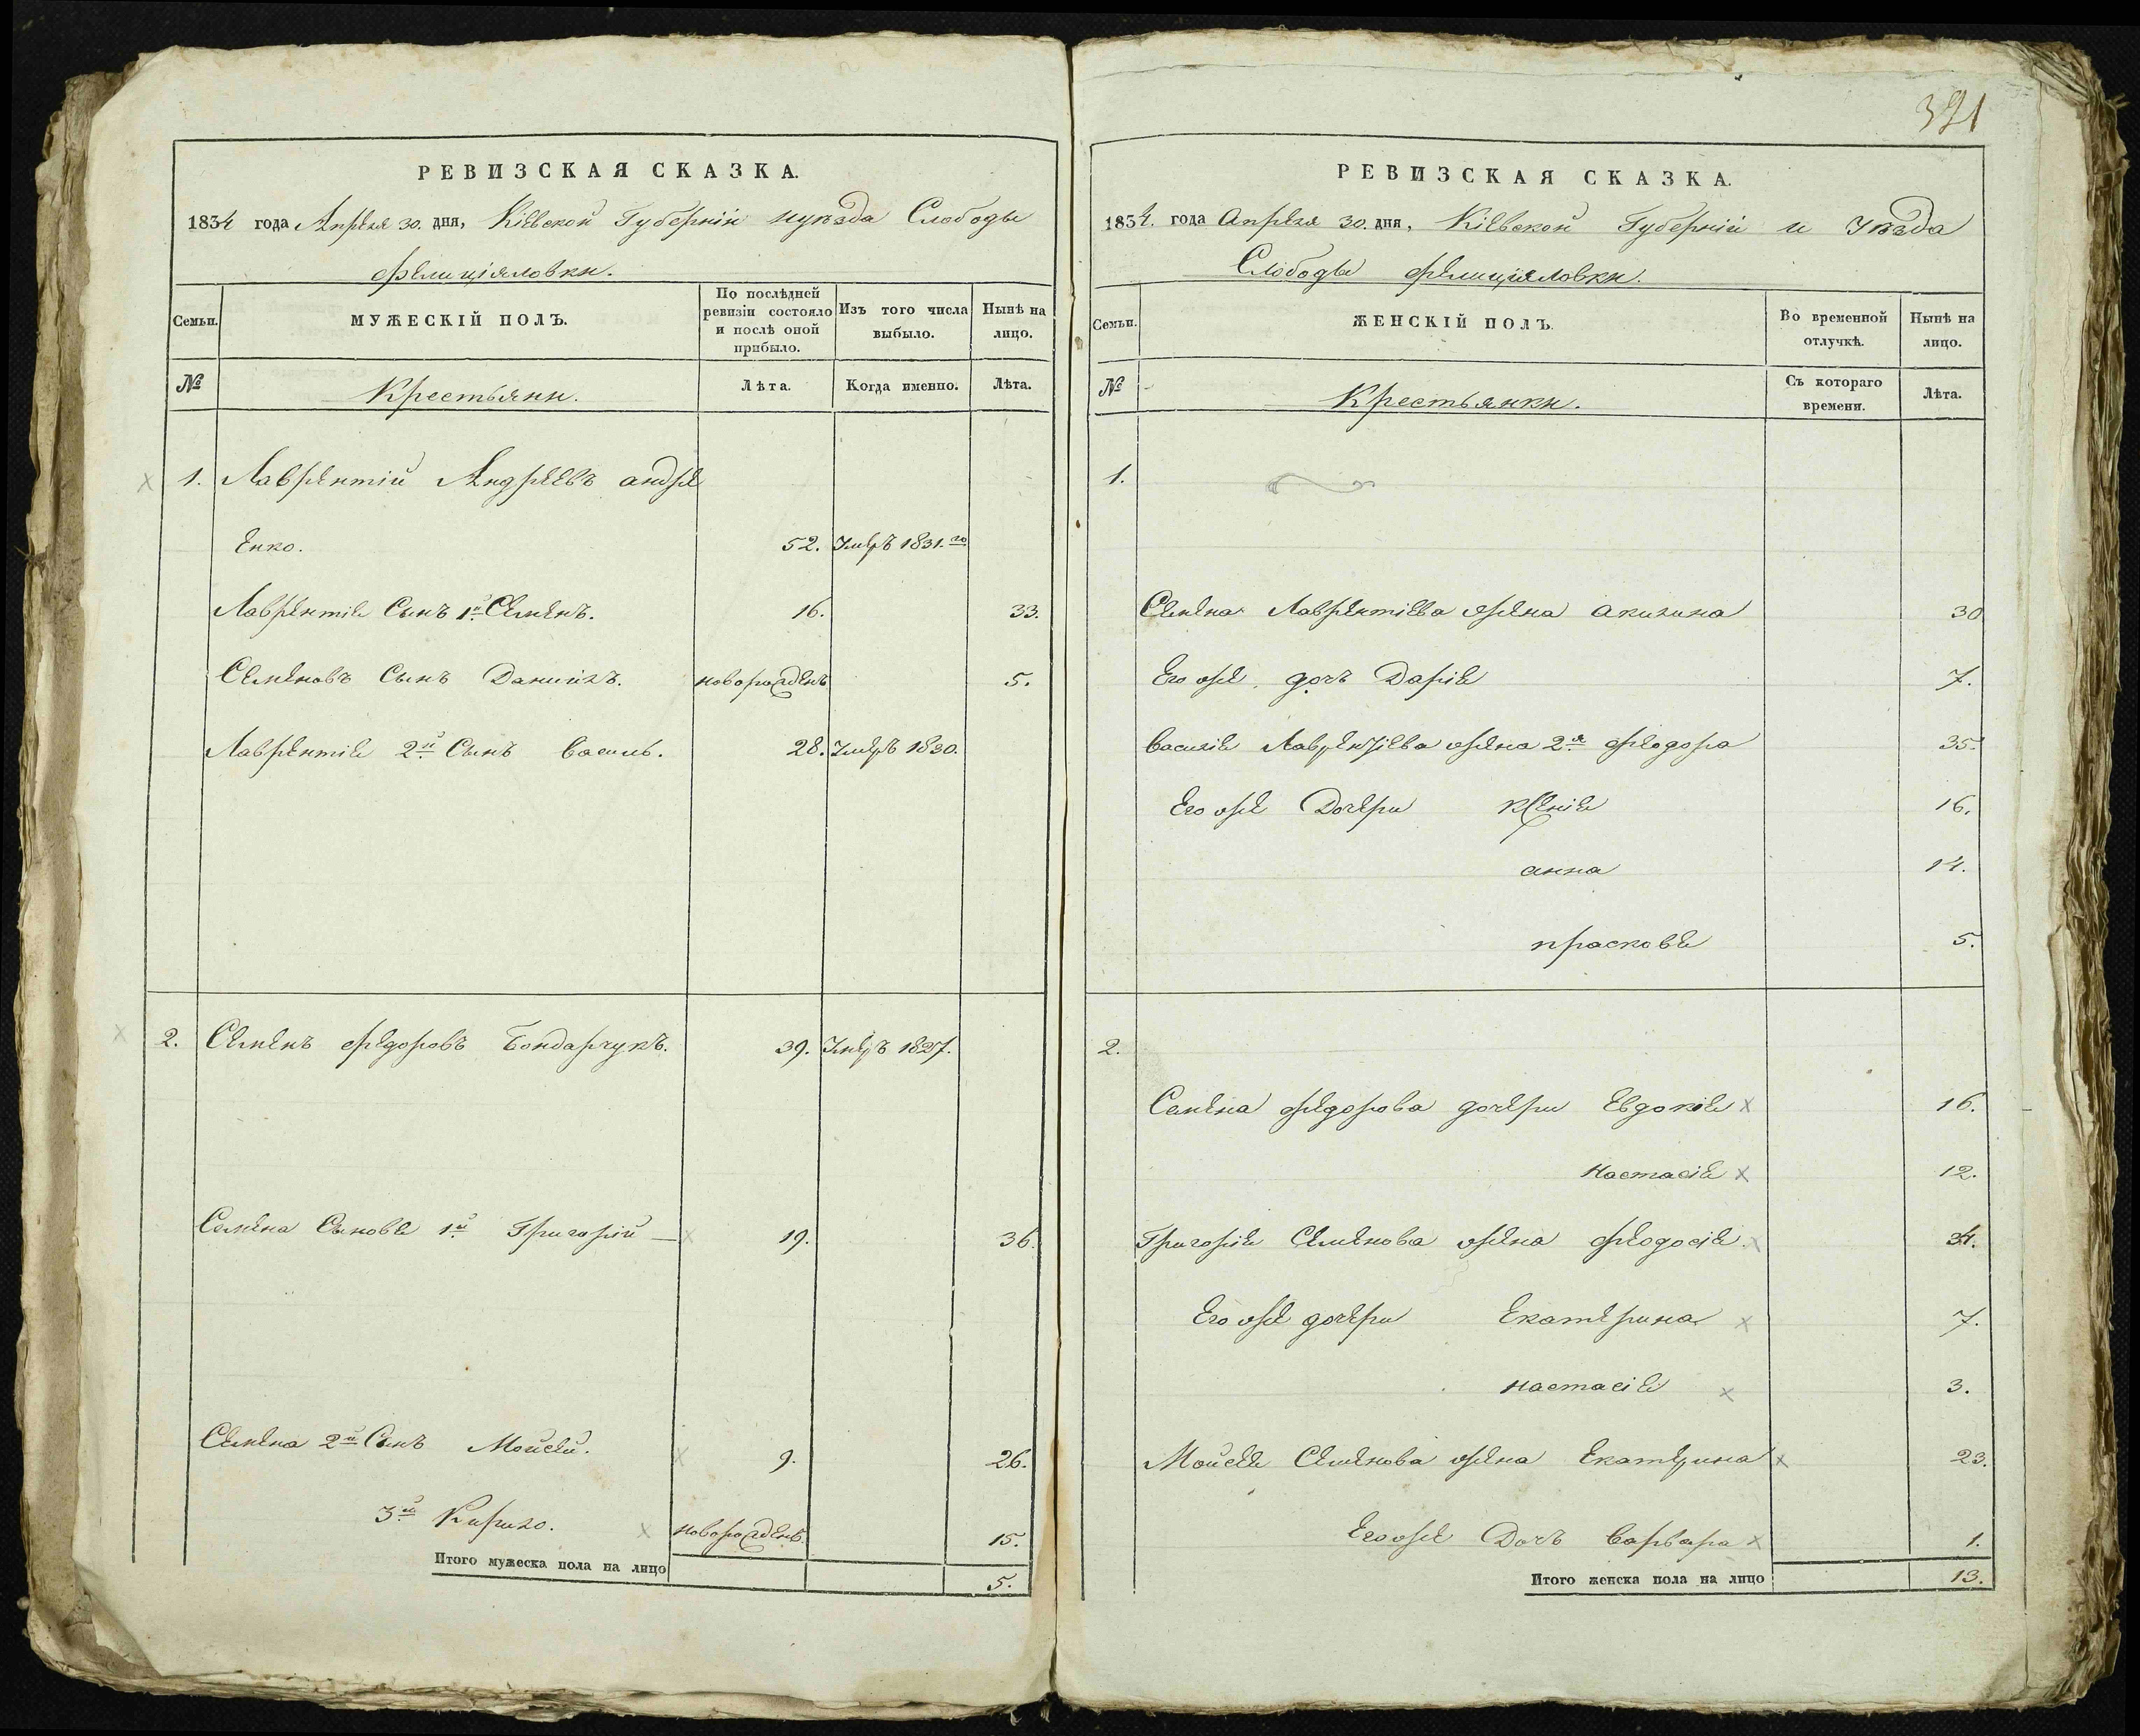 РЕВИЗСКАЯ СКАЗКА.
1834 года Апреля 30. дня, Кіевской Губерніи иуѣзда Слободы
Фелиціяловки.
Семьи.
МУЖЕСКІЙ ПОЛЪ.
По послѣдней ревизіи состояло и послѣ оной прибыло.
Изъ того числа выбыло.
Нынѣ на лицо.
№
Крестьяни.
Лѣта.
Когда именно.
Лѣта.
1. Лаврентій Андреевъ андре
Енко. 52. Умеръ 1831.го
Лаврентіе Сынъ 1й Семенъ. 16. 33.
Семеновъ Сынъ Даниилъ. новорожденъ 5.
Лаврентіе 2й Сынъ Василь. 28. Умеръ 1830.
2. Семенъ Федоровъ Бондарчукъ. 39. Умеръ 1827.
Семена Сынове 1й Григорій 19. 36.
Семена 2й Сынъ Мойсей. 9. 26.
3й Кирило. новорожденъ 15.
Итого мужеска пола на лицо 5.
321
РЕВИЗСКАЯ СКАЗКА.
1834. года Апреля 30. дня, Кіевской Губерніи и Уѣзда
Слободы Фелиціяловки.
Семьи.
ЖЕНСКІЙ ПОЛЪ.
Во временной отлучкѣ.
Нынѣ на лицо.
№
Крестьянки.
Съ котораго времени.
Лѣта.
1.
Семена Лаврентіева жена акилина 30
Его же дочъ Даріе 7.
Василіе Лаврентіева жена 2я Феодора 35.
Его же Дочери Ксеніе 16.
анна 14.
прасковѣ 5.
2.
Семена Федорова дочери Евдокіе 16.
Настасіе 12.
Григоріе Семенова жена Феодосіе 34.
Его же дочери Екатерина 7.
настасіе 3.
Мойсее Семенова жена Екатерина 23.
Его же Дочъ Варвара 1.
Итого женска пола на лицо 13.